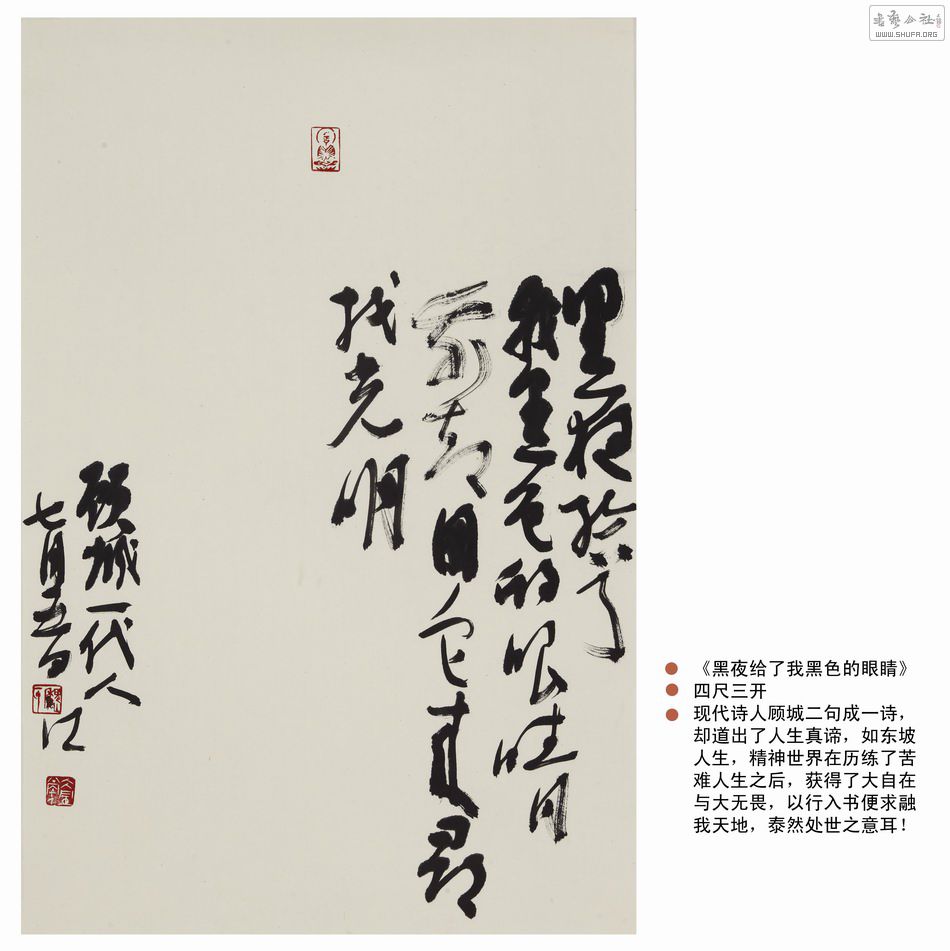 书艺公社
WWW.SHUFA.ORG
黑夜给了
我黑色的眼睛
却用它来寻
找光明
顾城一代人
七月五日 江
《黑夜给了我黑色的眼睛》
四尺三开
现代诗人顾城二句成一诗，
却道出了人生真谛，如东坡
人生，精神世界在历练了苦
难人生之后，获得了大自在
与大无畏，以行入书便求融
我天地，泰然处世之意耳！